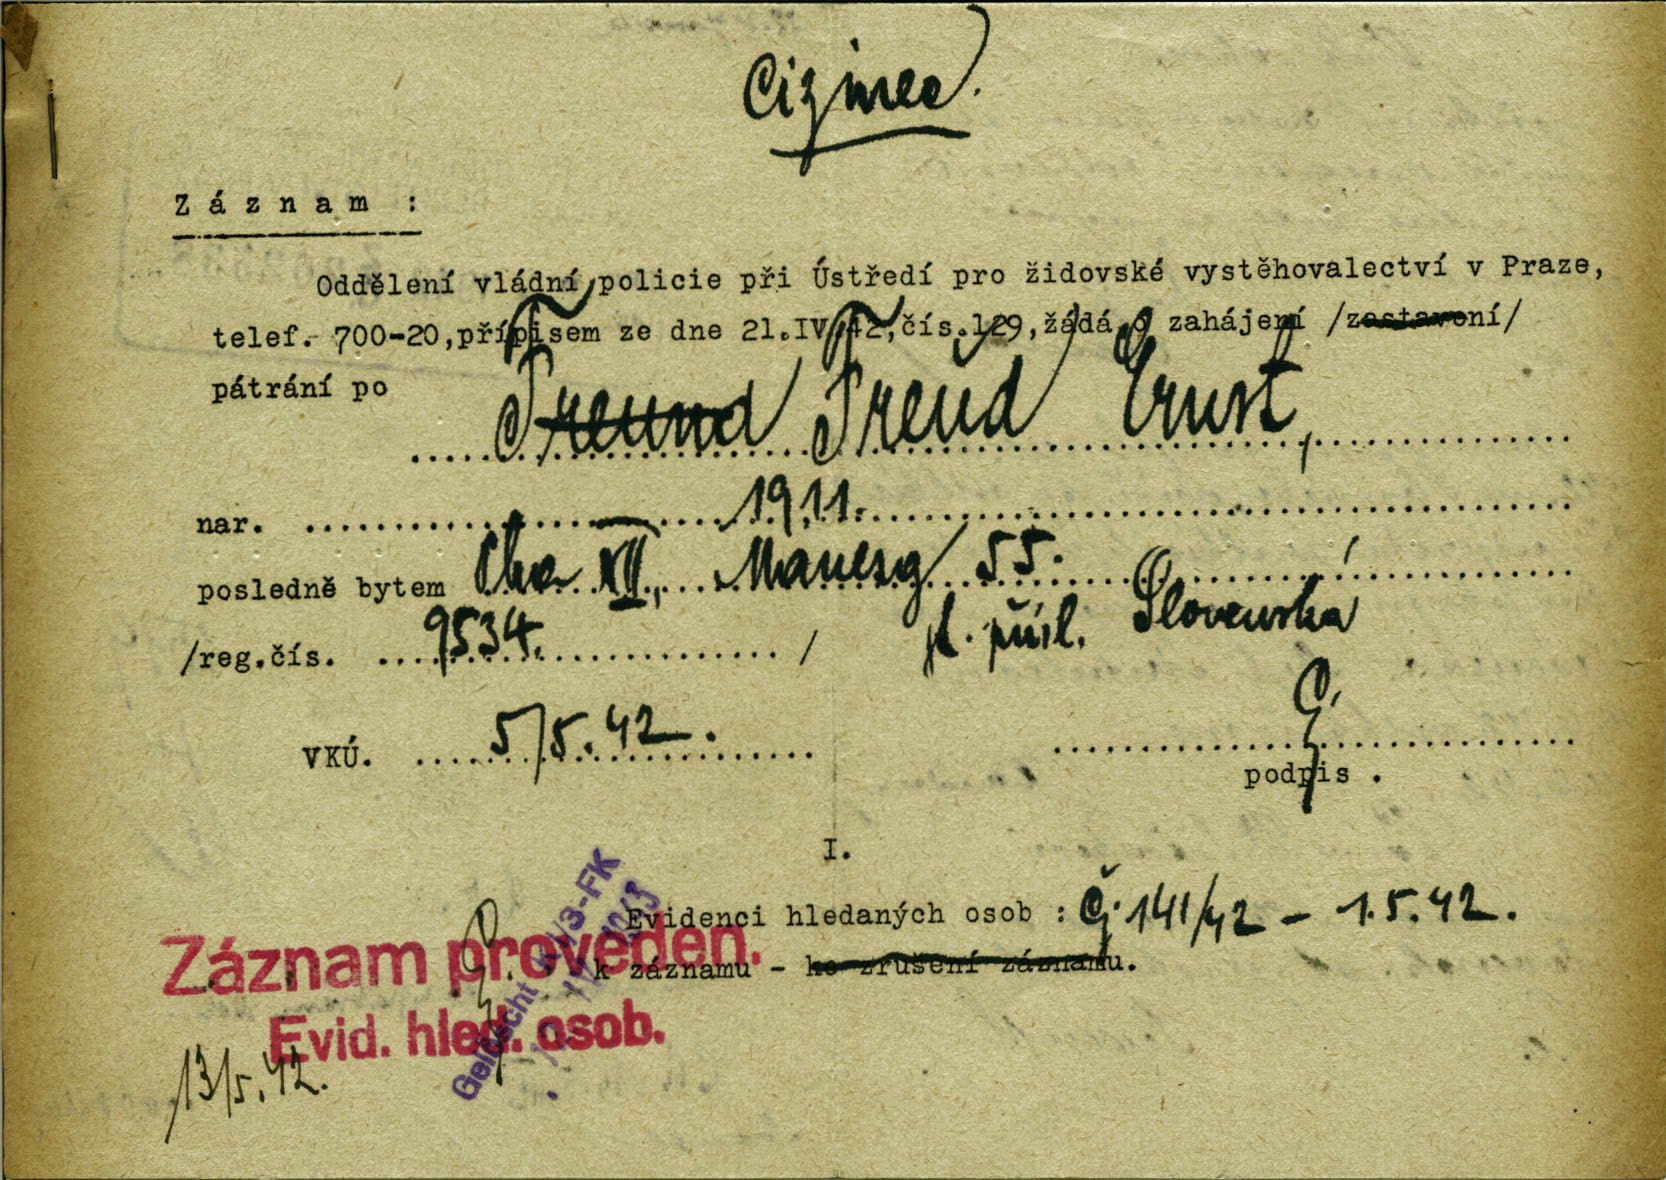 Cizinec.
Záznam :
Oddělení vládní policie při Ústředí pro židovské vystěhovalectví v Praze,
telef. 700-20,přípisem ze dne 21.IV.42,čís.129,žádá o zahájení /zastavení/
pátrání po Freund Freud Ernst,
nar. 1911.
posledně bytem Pha XII, Manesg 55.
/reg.čís. 9534. / st. přísl. Slovenská
VKÚ. 5/5.42.
podpis .
I.
Evidenci hledaných osob : Čj. 141/42 - 1.5.42.
k záznamu - ke zrušení záznamu.
Záznam proveden.
Evid. hled. osob.
Gelöscht
13/5.42.